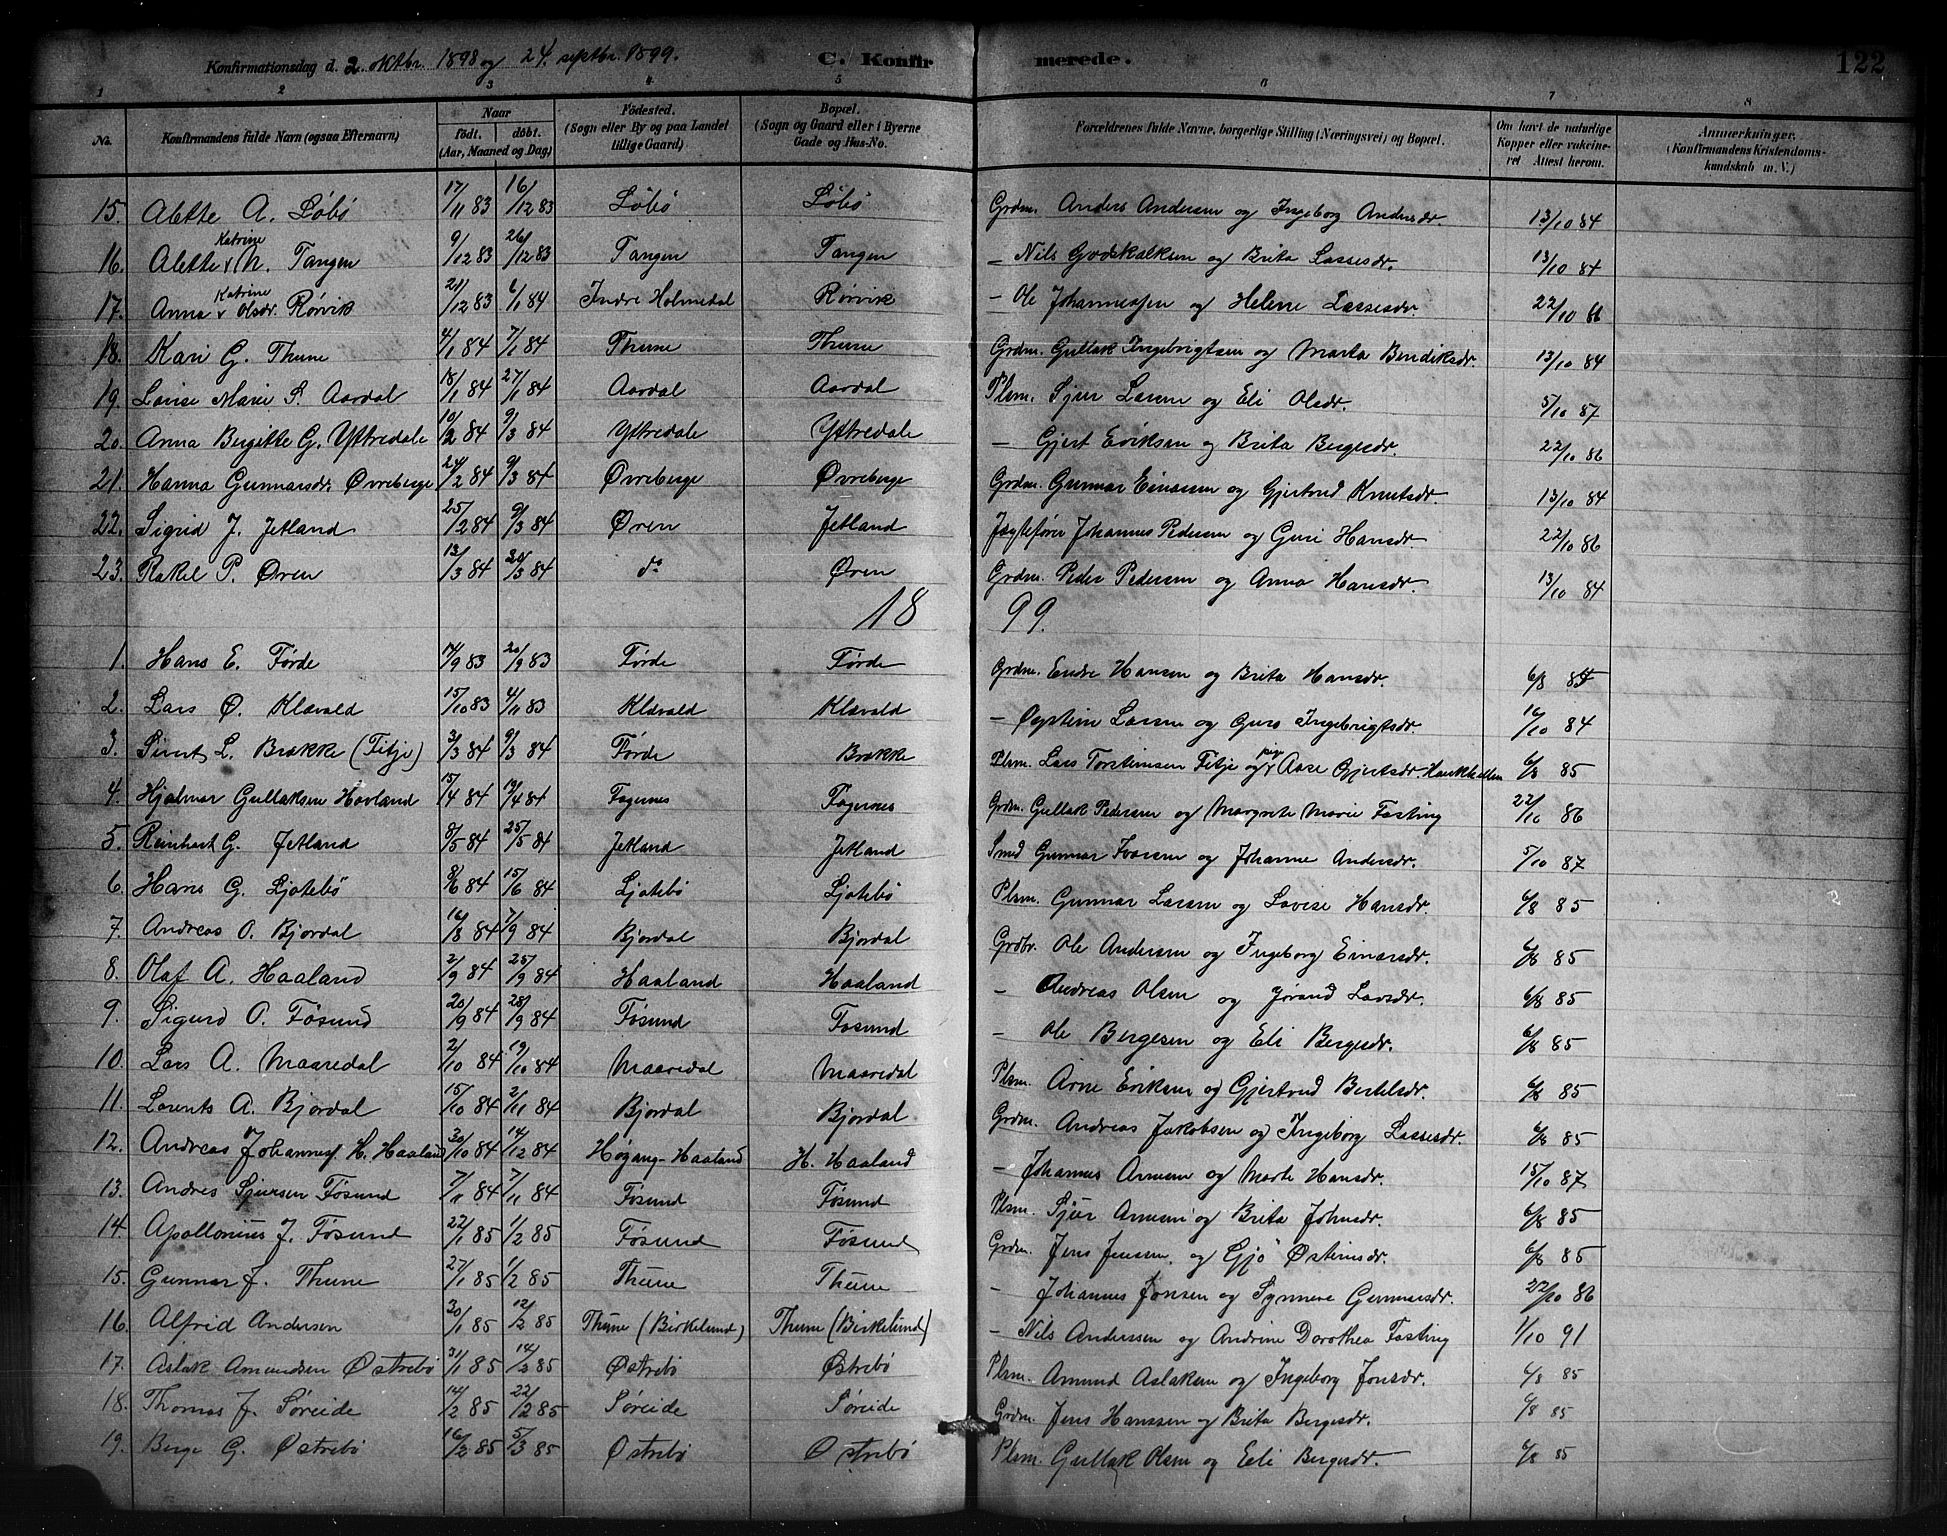 Konfirmationsdag d. 2. oktbr. 1898 og 24. septbr. 1899. C. Konfirmerede. 122
1 2 3 4 5 6 7 8
No. Konfirmandens fulde Navn (ogsaa Efternavn) Naar født. døbt. (Aar, Maaned og Dag) Fødested. (Sogn eller By og paa Landet tillige Gaard) Bopæl. (Sogn og Gaard eller i Byerne Gade og Hus-No. Forældrenes fulde Navne, borgerlige Stilling (Næringsvei) og Bopæl. Om havt de naturlige Kopper eller vaksineret. Attest herom. Anmærkninger. (Konfirmandens Kristendomskundskab m. V.)
15. Alette A. Løbø 17/11 83 16/12 83 Løbø Løbø Grdm. Anders Andersen og Ingeborg Andersdr. 13/10 84
16. Alette Katrine N. Tangen 9/12 83 26/12 83 Tangen Tangen – Nils Godskalksen og Brita Lassesdr. 13/10 84
17. Anna Katrine Olsdr. Rørvik 21/12 83 6/1 84 Indre Holmedal Rørvik – Ole Johannessen og Helene Lassesdr 22/10 86
18. Kari G. Thune 4/1 84 7/1 84 Thune Thune Grdm. Gullak Ingebrigtsen og Marta Bendiksdr. 13/10 84
19. Lovise Marie S. Aardal 18/1 84 27/1 84 Aardal Aardal Plsm. Sjur Larsen og Eli Olsdr. 5/10 87
20. Anna Bergitte G. Yttredale 10/2 84 9/3 84 Yttredale Yttredale – Gjert Eriksen og Brita Bergesdr. 22/10 86
21. Hanna Gunnarsdr. Øvreberge 24/2 84 9/3 84 Øvreberge Øvreberge Grdm. Gunnar Einarsen og Gjertrud Knutsdr 13/10 84
22. Sigrid J. Jetland 25/2 84 9/3 84 Øren Jetland Jægtefører Johannes Pedersen og Guri Hansdr. 22/10 86
23. Rakel P. Øren 13/3 84 30/3 84 do Øren Grdm. Peder Pedersen og Anna Hansdr. 13/10 84
18 99.
1. Hans E. Førde 14/9 83 20/9 83 Førde Førde Grdm. Endre Hansen og Brita Hansdr. 6/8 85
2. Lars Ø. Klævald 15/10 83 4/11 83 Klævald Klævald – Øystein Larsen og Guro Ingebrigtsdr. 16/10 84
3. Sivert L. Brække (Fitje) 3/3 84 9/3 84 Førde Brække Plsm. Lars Torsteinsen Fitje og pig. Aase Gjertsdr. Haukhellen 6/8 85
4. Hjalmar Gullaksen Hovland 15/4 84 19/4 84 Fagernes Fagernes Grdm. Gullak Pedersen og Margrete Marie Fasting 22/10 86
5. Reinhart G. Jetland 8/5 84 25/5 84 Jetland Jetland Smed Gunnar Ivarsen og Johanne Andersdr. 5/10 87
6. Hans G. Ljotebø 8/6 84 15/6 84 Ljotebø Ljotebø Plsm. Gunnar Larsen og Lovise Hansdr. 6/8 85
7. Andreas O. Bjordal 16/8 84 7/9 84 Bjordal Bjordal Grdbr. Ole Andersen og Ingeborg Einarsdr. 6/8 85
8. Olaf A. Haaland 2/9 84 25/9 84 Haaland Haaland – Andreas Olsen og Jørand Larsdr. 6/8 85
9. Sigurd O. Føsund 20/9 84 28/9 84 Føsund Føsund – Ole Bergesen og Eli Bergesdr. 6/8 85
10. Lars A. Maaredal 2/10 84 19/10 84 Maaredal Maaredal Plsm. Arne Eriksen og Gjertrud Bertelsdr. 6/8 85
11. Lorents A. Bjordal 15/10 84 2/11 84 Bjordal Bjordal Grdm. Andreas Jakobsen og Ingeborg Lassesdr. 6/8 85
12. Andreas Johanness. H. Haaland 30/10 84 14/12 84 Høgang-Haaland H. Haaland – Johannes Arnesen og Marte Hansdr. 15/10 87
13. Andres Sjursen Føsund 7/11 84 7/11 84 Føsund Føsund Plsm. Sjur Arnesen og Brita Johnsdr. 6/8 85
14. Apollonius J. Føsund 22/1 85 1/2 85 Føsund Føsund Grdm. Jens Jensen og Gjø Østensdr. 6/8 85
15. Gunnar J. Thune 27/1 85 1/2 85 Thune Thune – Johannes Jonsen og Synneve Gunnarsdr. 22/10 86
16. Alfrid Andersen 30/1 85 12/2 85 Thune (Birkelund) Thune (Birkelund) – Nils Anderssen og Andrine Dorothea Fasting 1/10 91
17. Aslak Amundsen Østrebø 31/1 85 14/2 85 Østrebø Østrebø Plsm. Amund Aslaksen og Ingeborg Jonsdr. 6/8 85
18. Thomas J. Søreide 14/2 85 22/2 85 Søreide Søreide Grdm. Jens Hanssen og Brita Bergesdr. 6/8 85
19. Berge G. Østrebø 16/2 85 5/3 85 Østrebø Østrebø Plsm. Gullak Olsen og Eli Bergesdr. 6/8 85